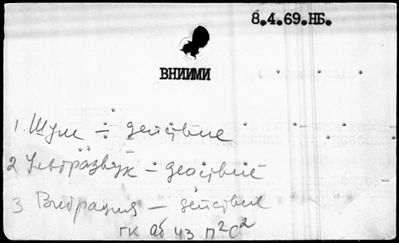 8.4.69.НБ.
ВНИИМИ
1. Шум – действие
2 Ультразвук – действие
3 Вибрация – действие
ГК аб 43 п²с²